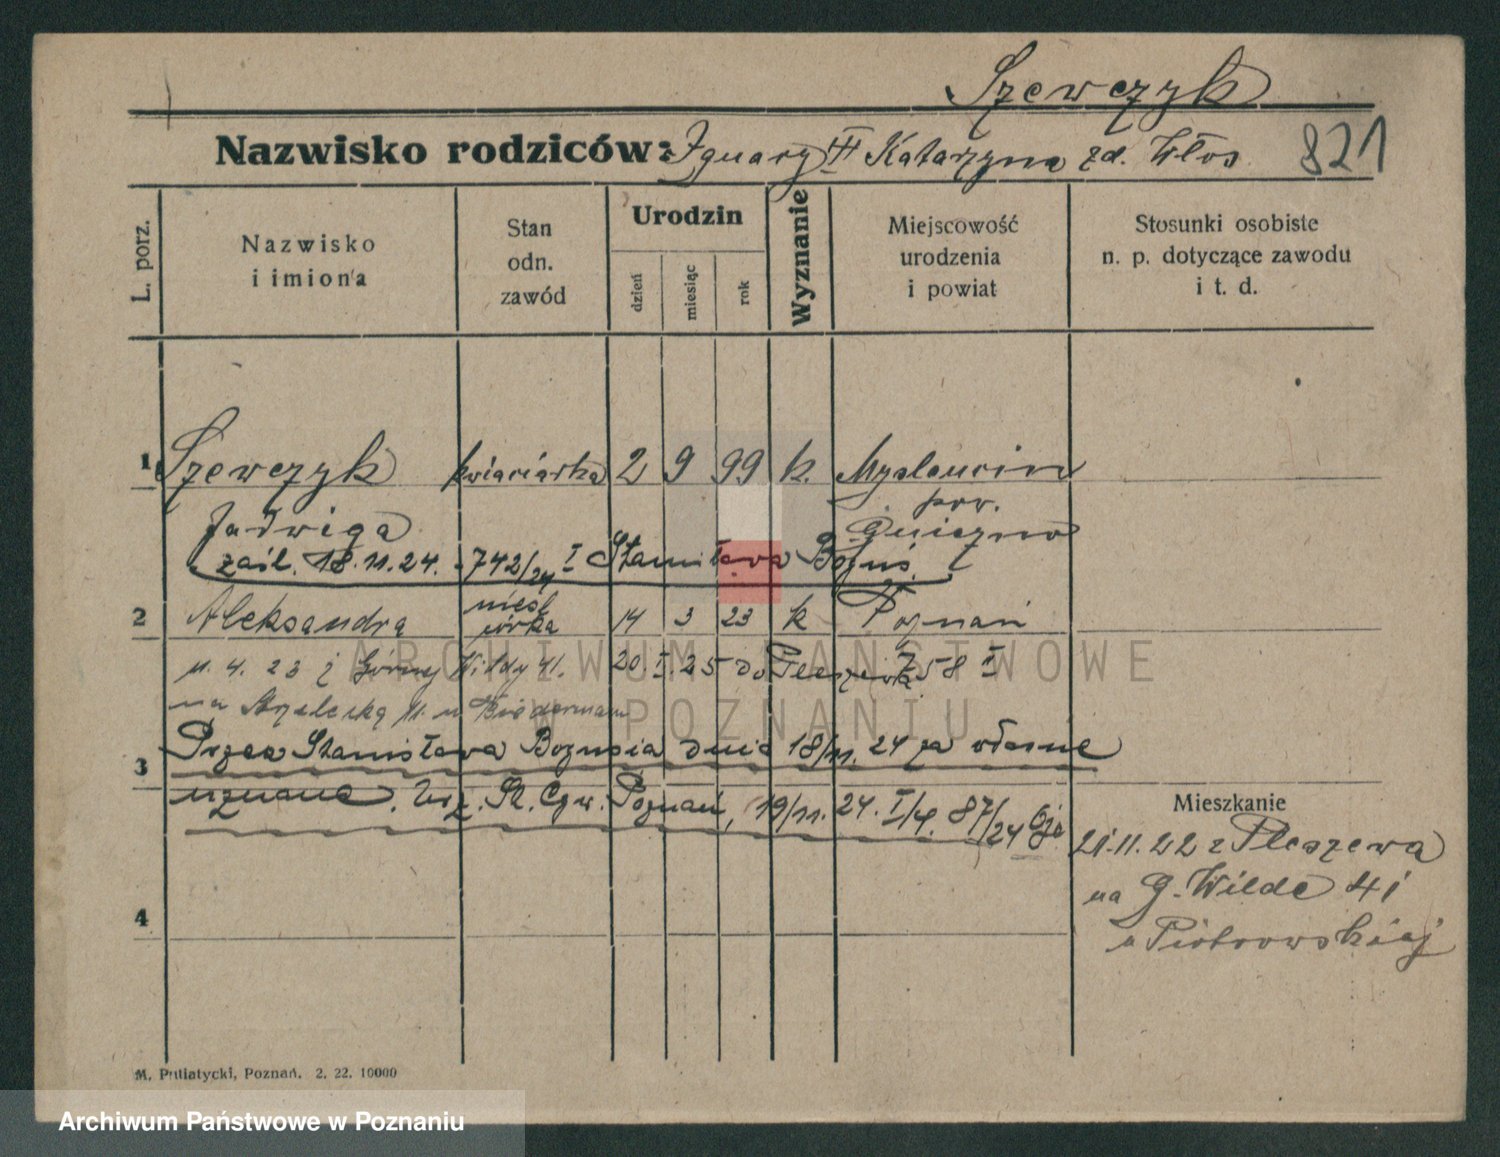 Szewczyk
Nazwisko rodziców: Ignacy III Katarzyna zd. Włos 821
L. porz.
Nazwisko i imiona
Stan odn. zawód
Urodzin
dzień
miesiąc
rok
Wyznanie
Miejscowość urodzenia i powiat
Stosunki osobiste n. p. dotyczące zawodu i t. d.
1 Szewczyk kwiaciarka 2 9 99 k.
Jadwiga pow. Gniezno
zaśl. 18.11.24. 742/24 I Stanisława Boguś
2 Aleksandra 14 3 23 k Poznań
11. 4. 23 z Górny Wildy 41. 20. I. 25 do Pleszewa 758 II
na Strzelecką 11. u Biederman
Przez Stanisława dnia 18/11. 24 za własne
3
uznane. Urz. St. Cyw. Poznań, 19/11. 24. 87/24
Mieszkanie
21.11.22 z Pleszewa
na G. Wilde 41
u Piotrowskiej
4
ARCHIWUM PAŃSTWOWE
W POZNANIU
M. Putiatycki, Poznań. 2. 22. 10000
Archiwum Państwowe w Poznaniu